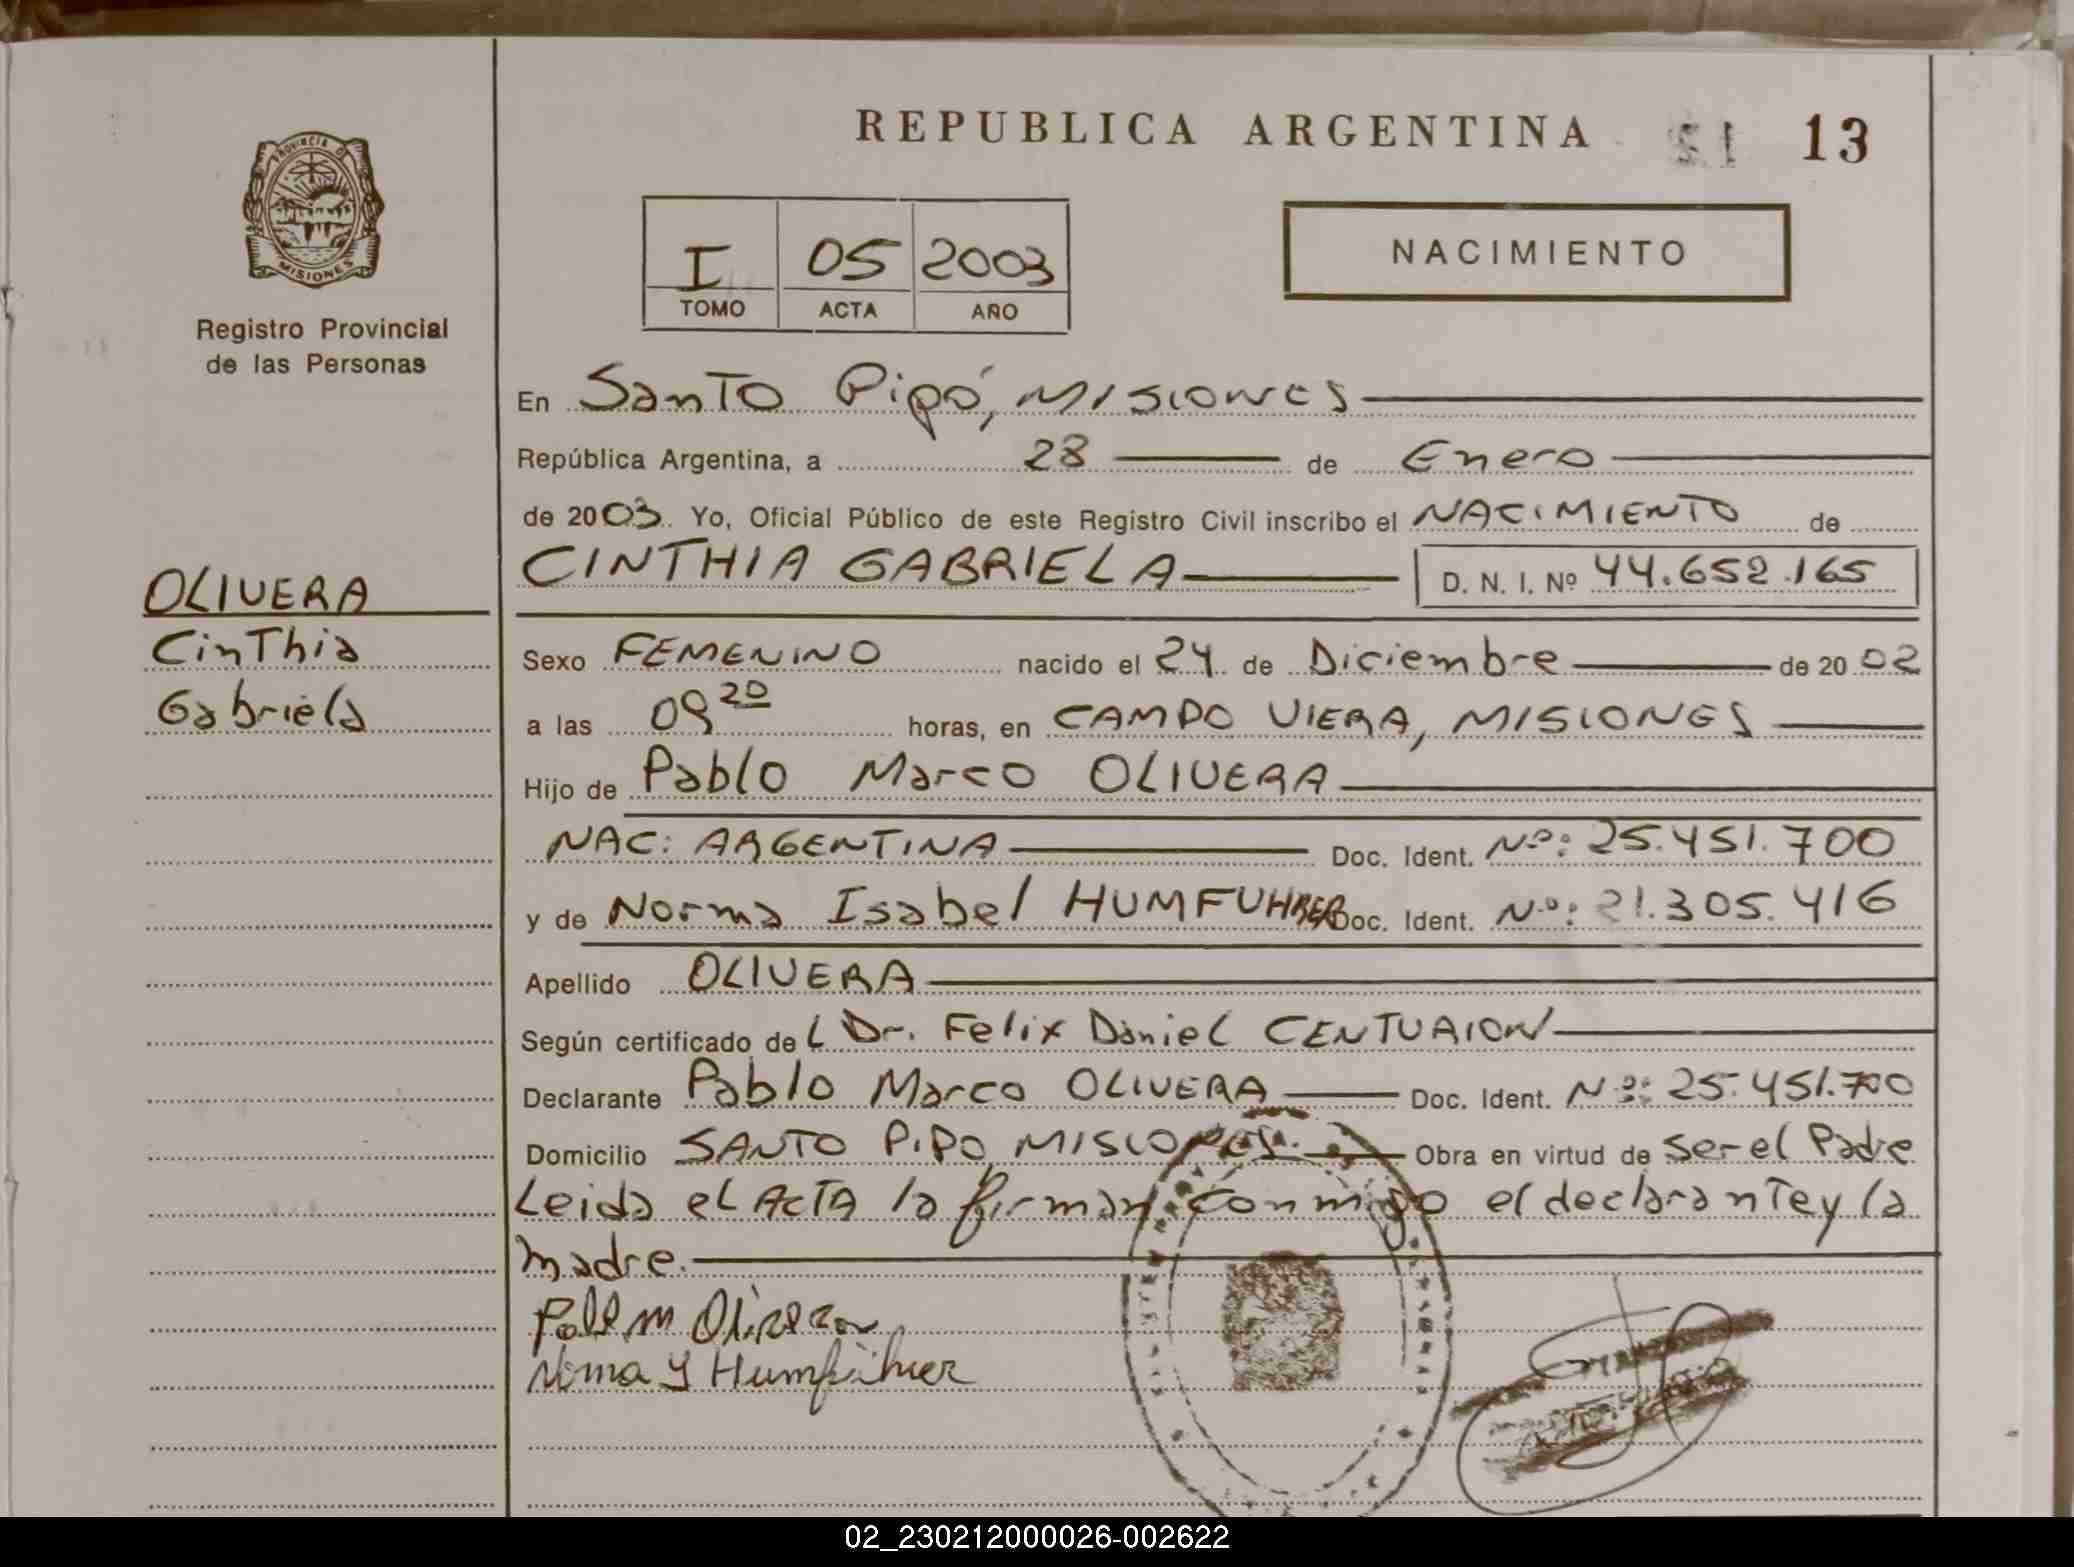 REPUBLICA ARGENTINA 13
PROVINCIA DE
MISIONES
Registro Provincial
de las Personas
I 05 2003
TOMO ACTA AÑO
NACIMIENTO
En Santo Pipó, MISIONES
República Argentina, a 28 de Enero
de 2003. Yo, Oficial Público de este Registro Civil inscribo el NACIMIENTO de
CINTHIA GABRIELA D. N. I. Nº 44.652.165
OLIVERA
Cinthia
Gabriela
Sexo FEMENINO nacido el 24 de Diciembre de 20 02
a las 09 20 horas, en CAMPO VIERA, MISIONES
Hijo de Pablo Marco OLIVERA
NAC: ARGENTINA Doc. Ident. Nº: 25.451.700
y de Norma Isabel HUMFUHRER Doc. Ident. Nº: 21.305.416
Apellido OLIVERA
Según certificado de L Dr. Felix Daniel CENTURION
Declarante Pablo Marco OLIVERA Doc. Ident. Nº: 25.451.700
Domicilio SANTO PIPO MISIONES. Obra en virtud de Ser el Padre
Leida el ACTA la firman conmigo el declarante y la
madre.
02_230212000026-002622